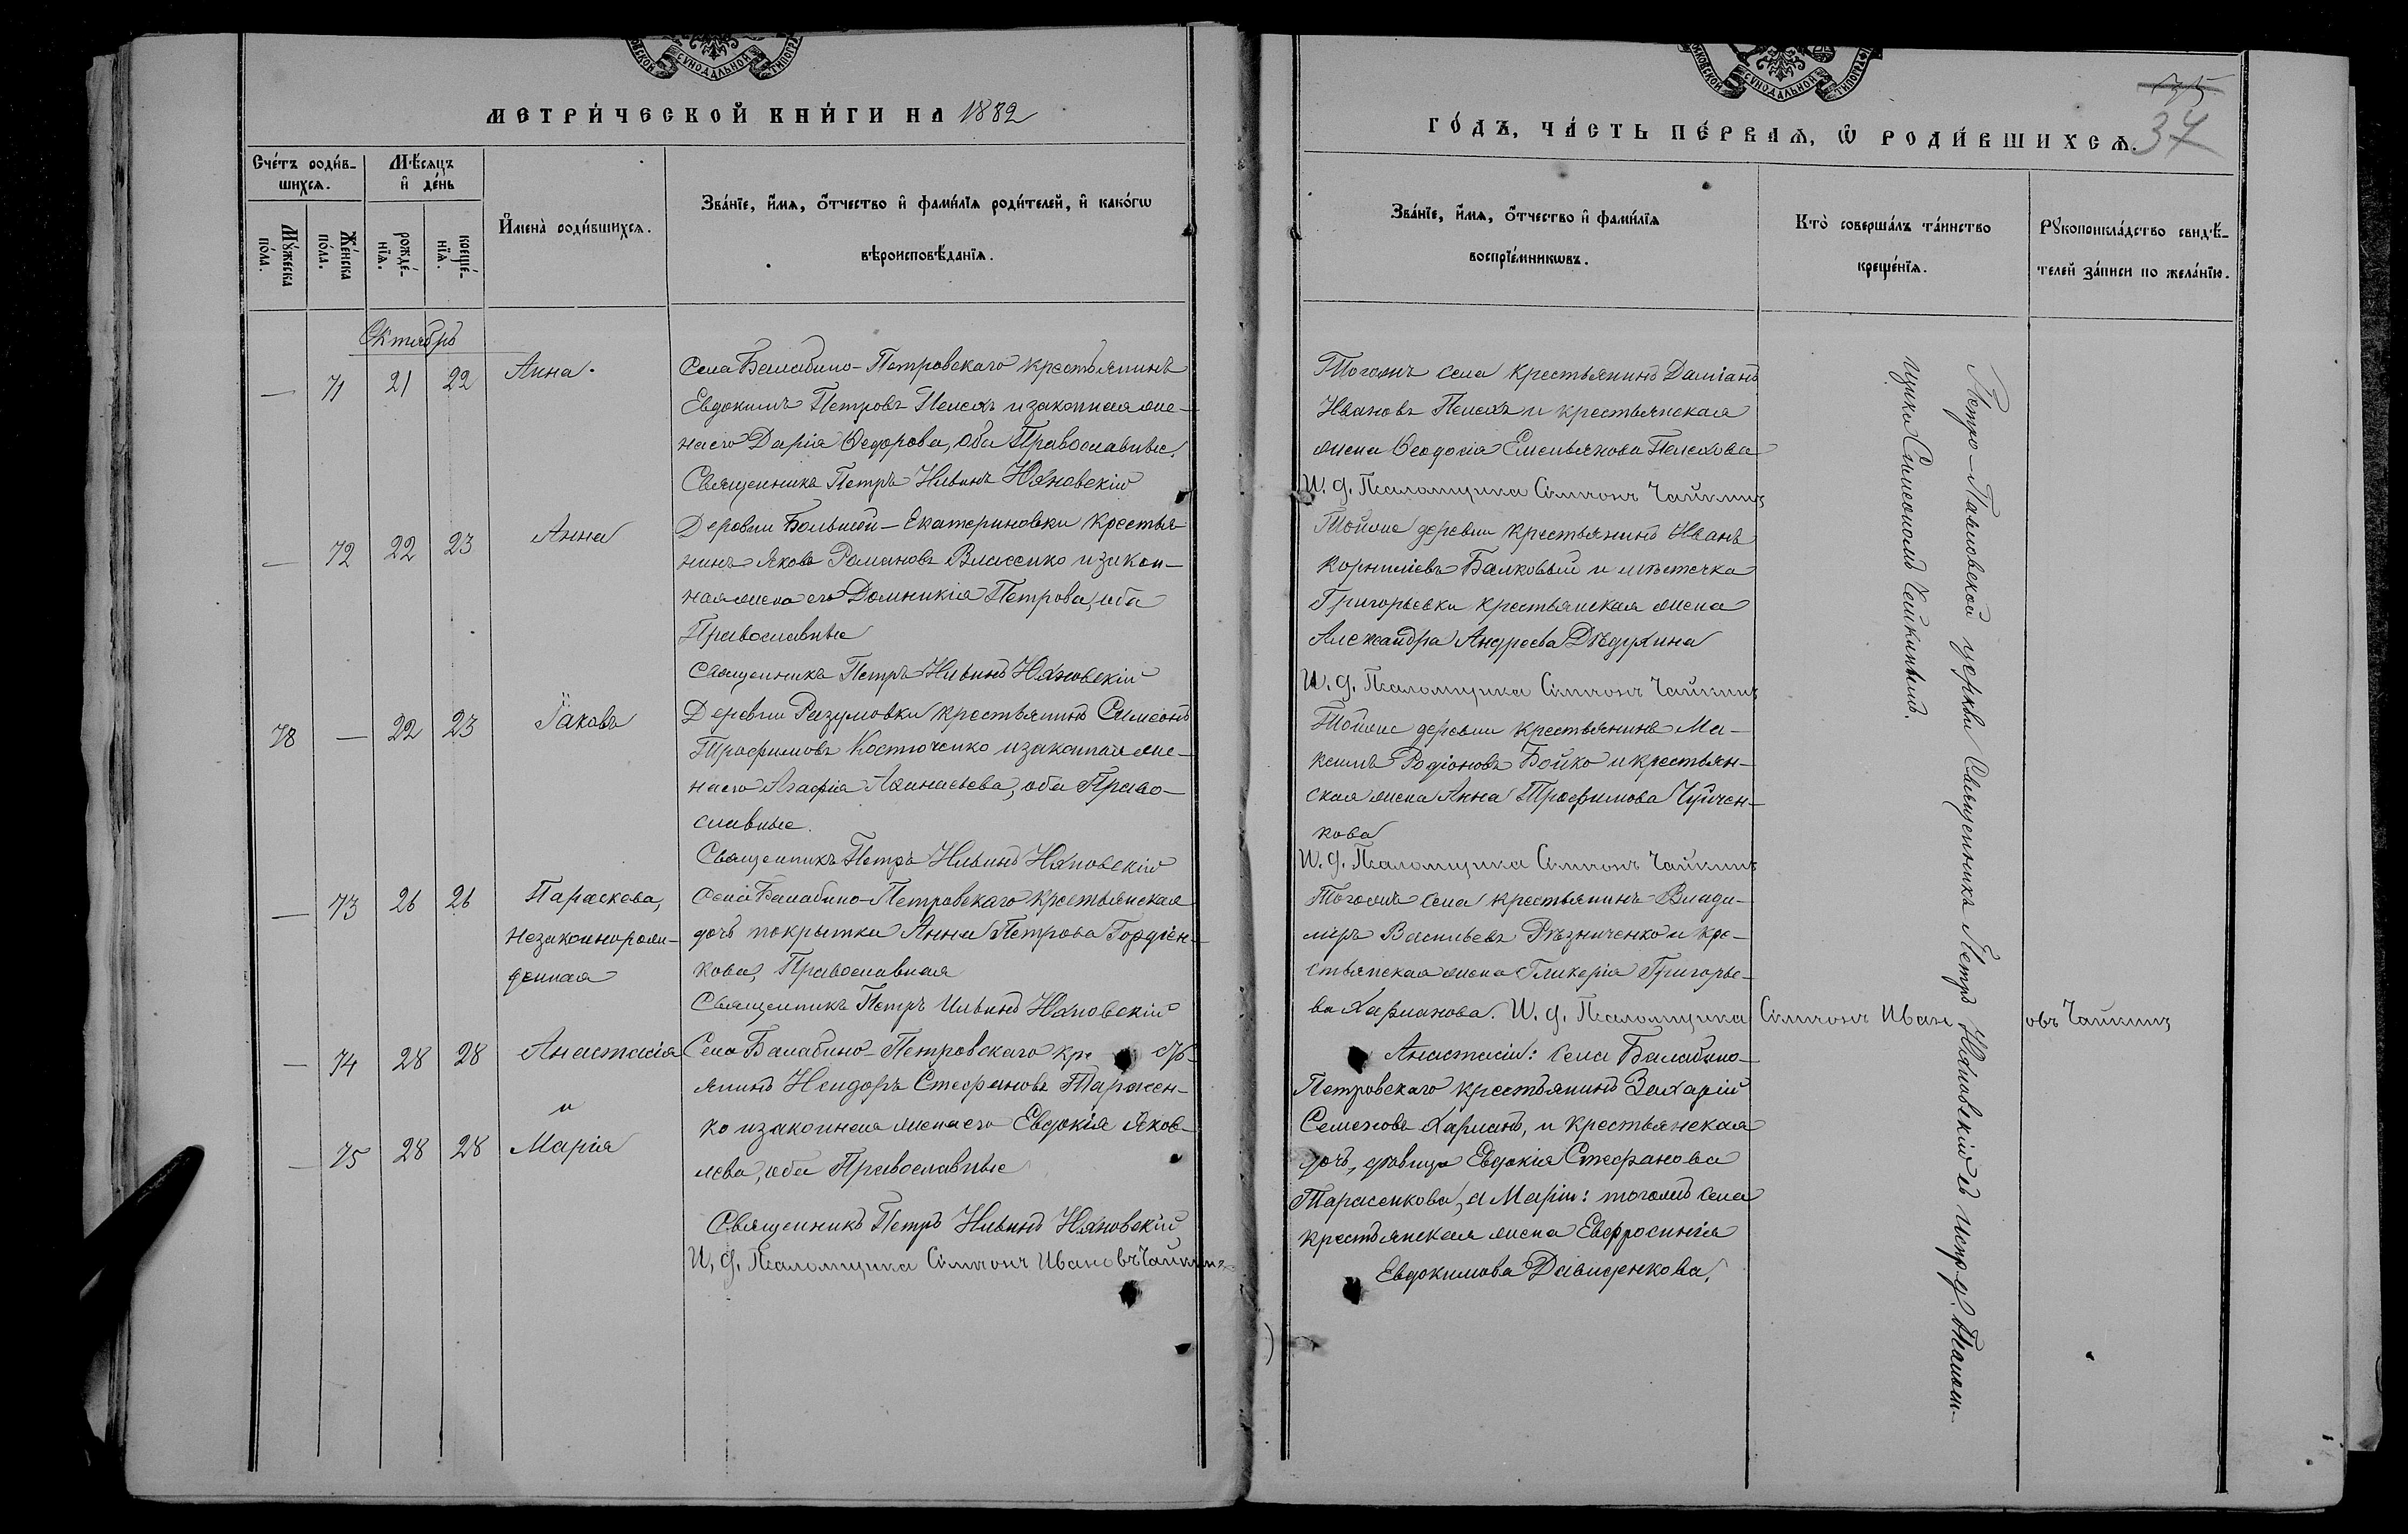 МЕТРИ́ЧЕСКОЙ КНИ́ГИ НА 1882
Сче́тъ роди́в-
шихся.
Мѣ́сяцъ
и҆ де́нь
Му́жеска
по́ла.
Же́нска
по́ла.
рожде́-
нїя.
креще́-
нїя.
И҆мена̀ роди́вшихся.
Зва́нїе, и҆́мя, ѻ҆́тчество и҆ фами́лїя роди́телей, и҆ како́гѡ
вѣроисповѣ́данїя.
Октябрь
— 71 21 22 Анна.
Села Балабино-Петровскаго крестьянинъ
Евдокимъ Петровъ Пелехъ и законная же-
на его Дарія Ѳедорова, оба Православные.
Священникъ Петръ Ильинъ Яновскій
— 72 22 23 Анна
Деревни Большой-Екатериновки крестья-
нинъ Яковъ Романовъ Власенко и закон-
ная жена его Домникія Петрова, оба
Православные
Священникъ Петръ Ильинъ Яновскій
78 — 22 23 Іаковъ
Деревни Разумовки крестьянинъ Симеонъ
Трофимовъ Костюченко и законная же-
на его Агафія Аѳанасьева, оба Право-
славные.
Священникъ Петръ Ильинъ Яновскій
— 73 26 26 Параскева,
незаконнорож-
денная
Села Балабино-Петровскаго крестьянская
дочь покрытка Анна Петрова Гордіен-
кова, Православная
Священникъ Петръ Ильинъ Яновскій
— 74 28 28 Анастасія
и
— 75 28 28 Марія
Села Балабино-Петровскаго кре сть-
янинъ Исидоръ Стефановъ Тарасен-
ко и законная жена его Евдокія Яков-
лева, оба Православные
Священникъ Петръ Ильинъ Яновскій
И. д. Псаломщика Симеонъ Ивановъ Чайкинъ
ГО́ДЪ, ЧА́СТЬ ПЕ́РВАЯ, Ѡ҆ РОДИ́ВШИХСЯ.
37
Зва́нїе, и҆́мя, ѻ҆́тчество и҆ фами́лїя
воспрїе́мникѡвъ.
Кто̀ соверша́лъ та́инство
креще́нїя.
Рукоприкла́дство свидѣ́-
телей за́писи по жела́нїю.
Тогожъ села крестьянинъ Даміанъ
Ивановъ Пелехъ и крестьянская
жена Ѳеодосія Емельянова Пелехова
И. д. Псаломщика Симеонъ Чайкинъ
Тойже деревни крестьянинъ Иванъ
Корниліевъ Балковый и мѣстечка
Григорьевки крестьянская жена
Александра Андреева Дѣдухина
И. д. Псаломщика Симеонъ Чайкинъ
Тойже деревни крестьянинъ Ма-
ксимъ Родіоновъ Бойко и крестьян-
ская жена Анна Трофимова Чуйчен-
кова
И. д. Псаломщика Симеонъ Чайкинъ
Тогожъ села крестьянинъ Влади-
міръ Васильевъ Рѣзниченко и кре-
стьянская жена Гликерія Григорье-
ва Харланова. И. д. Псаломщика Симеонъ Ивановъ Чайкинъ
Анастасіи: села Балабино-
Петровскаго крестьянинъ Захарій
Семеновъ Харланъ, и крестьянская
дочь, дѣвица Евдокія Стефанова
Тарасенкова, а Маріи: тогожъ села
крестьянская жена Евфросинія
Евдокимова Давиденкова.
Петро-Павловской церкви Священникъ Петръ Яновскій съ испр. д. Псалом-
щика Симеономъ Чайкинымъ.